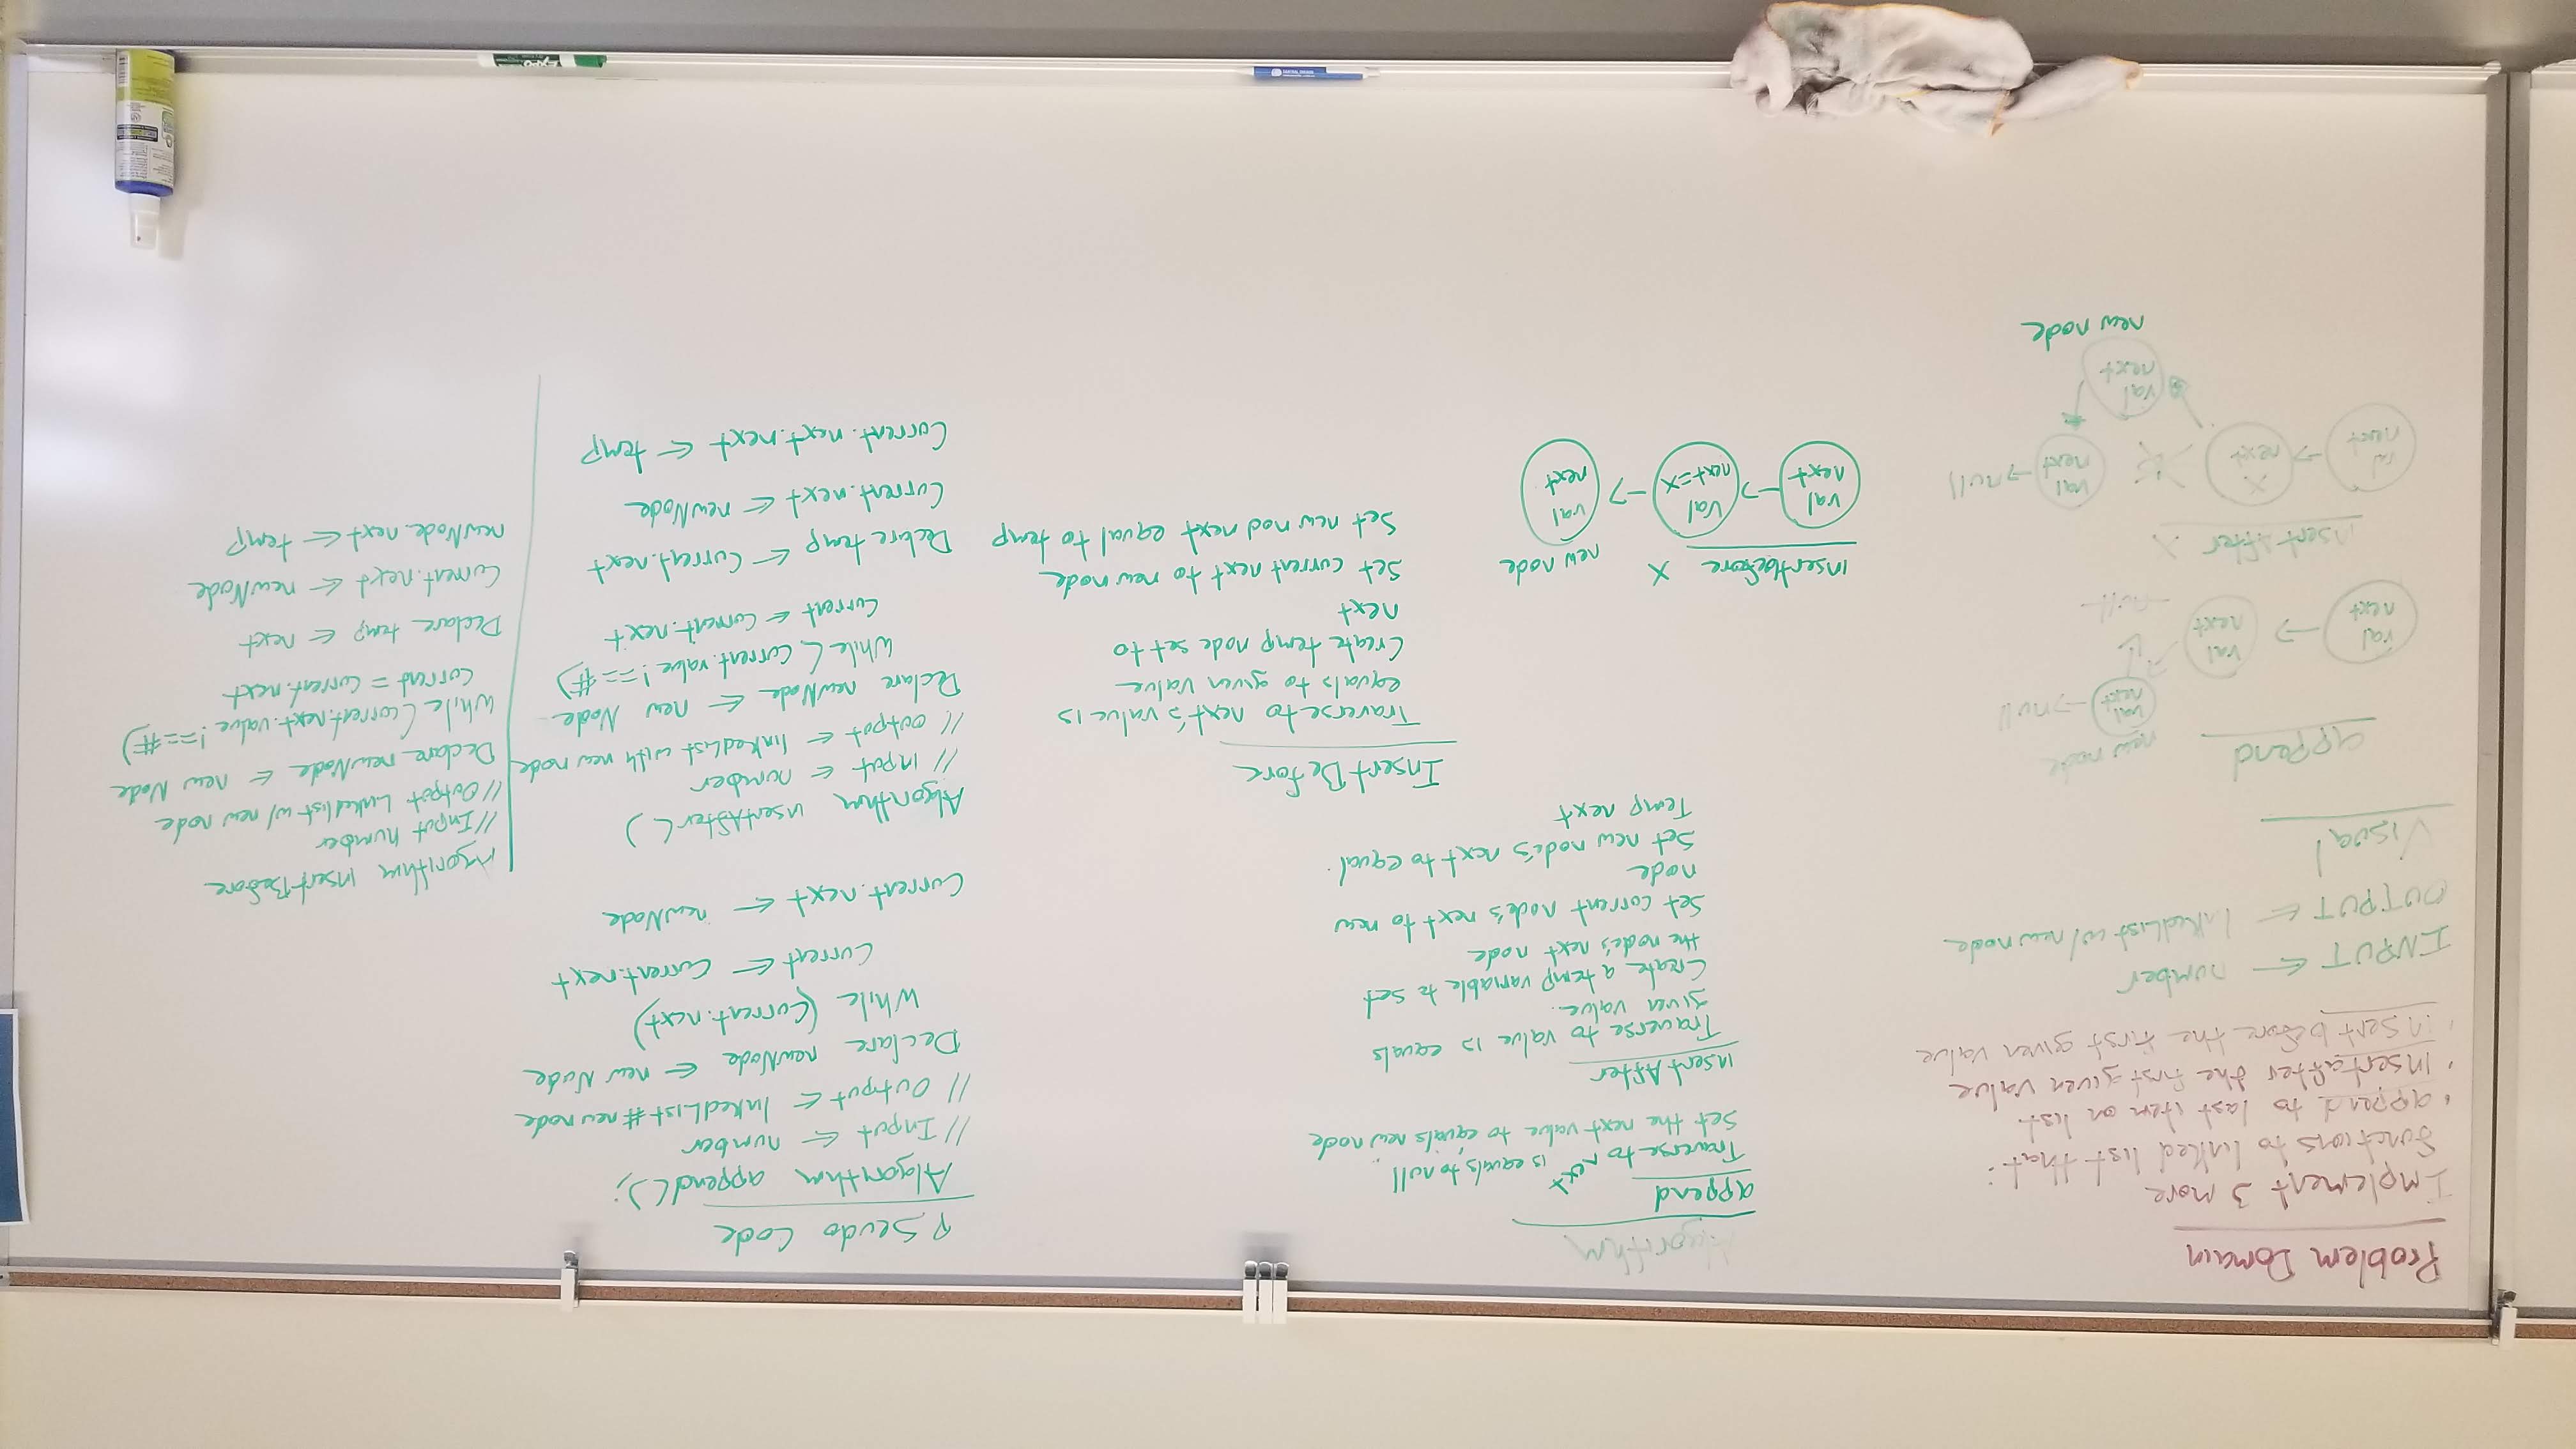 Problem Domain
Implement 3 more
functions to linked list that:
• append to last item on list.
• insert after the first given value
• insert before the first given value
INPUT ← number
OUTPUT ← linkedList w/ new node
Visual
append
new node
val
next
→ null
val
next
→
val
next
null
insertAfter X
val
next
→
X
next
val
next
→ null
val
next
new node
Algorithm
append
Traverse to next is equals to null
Set the next value to equals new node
insertAfter
Traverse to value is equals
given value.
Create a temp variable to set
the node's next node
Set current node's next to new
node
Set new node's next to equal
Temp next
insertbefore X
new node
val
next
→
Val
next=X
→
val
next
InsertBefore
Traverse to next's value is
equals to given value
Create temp node set to
next
Set current next to new node
Set new nod next equal to temp
Pseudo Code
Algorithm append();
// Input ← number
// Output ← linkedList # new node
Declare newNode ← new Node
While (Current.next)
Current ← Current.next
Current.next ← newNode
Algorithm insertAfter()
// input ← number
// output ← linkedList with new node
Declare newNode ← new Node
While (Current.value !== #)
Current ← Current.next
Declare temp ← Current.next
Current.next ← newNode
Current.next.next ← temp
Algorithm insertBefore
// Input number
// Output Linkedlist w/ new node
Declare newNode ← new Node
While (current.next.value !== #)
Current = Current.next
Declare temp ← next
Current.next ← newNode
newNode.next ← temp
EXPO